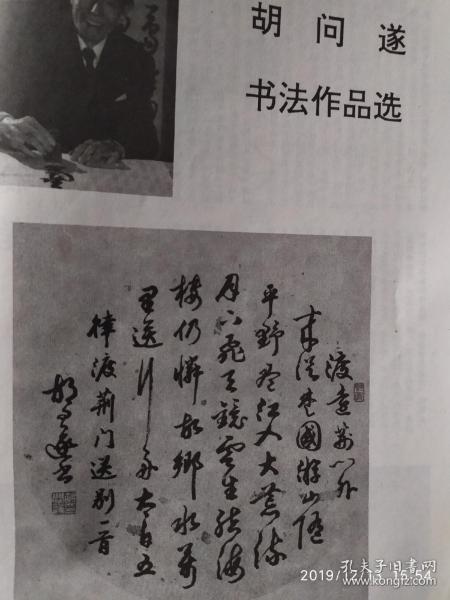 胡问遂
书法作品选
渡远荆门外
来从楚国游山随
平野尽江入大荒流
月下飞天镜云生结海
楼仍怜故乡水万
里送行舟太白五
律渡荆门送别一首
胡问遂书
孔夫子旧书网
2019/12/13 15:54